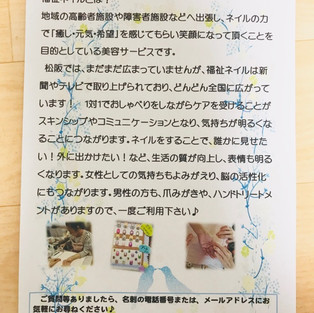 福祉ネイルとは？
地域の高齢者施設や障害者施設などへ出張し、ネイルの力
で「癒し・元気・希望」を感じてもらい笑顔になって頂くことを
目的としている美容サービスです。
松阪では、まだまだ広まっていませんが、福祉ネイルは新聞
やテレビで取り上げられており、どんどん全国に広がって
います！ 1対1でおしゃべりをしながらケアを受けることが
スキンシップやコミュニケーションとなり、気持ちが明るくな
ることにつながります。ネイルをすることで、誰かに見せた
い！外に出かけたい！など、生活の質が向上し、表情も明る
くなります。女性としての気持ちもよみがえり、脳の活性化
にもつながります。男性の方も、爪みがきや、ハンドトリートメ
ントがありますので、一度ご利用下さい♪
ご質問等ありましたら、名刺の電話番号または、メールアドレスにお
気軽にお尋ねください♪